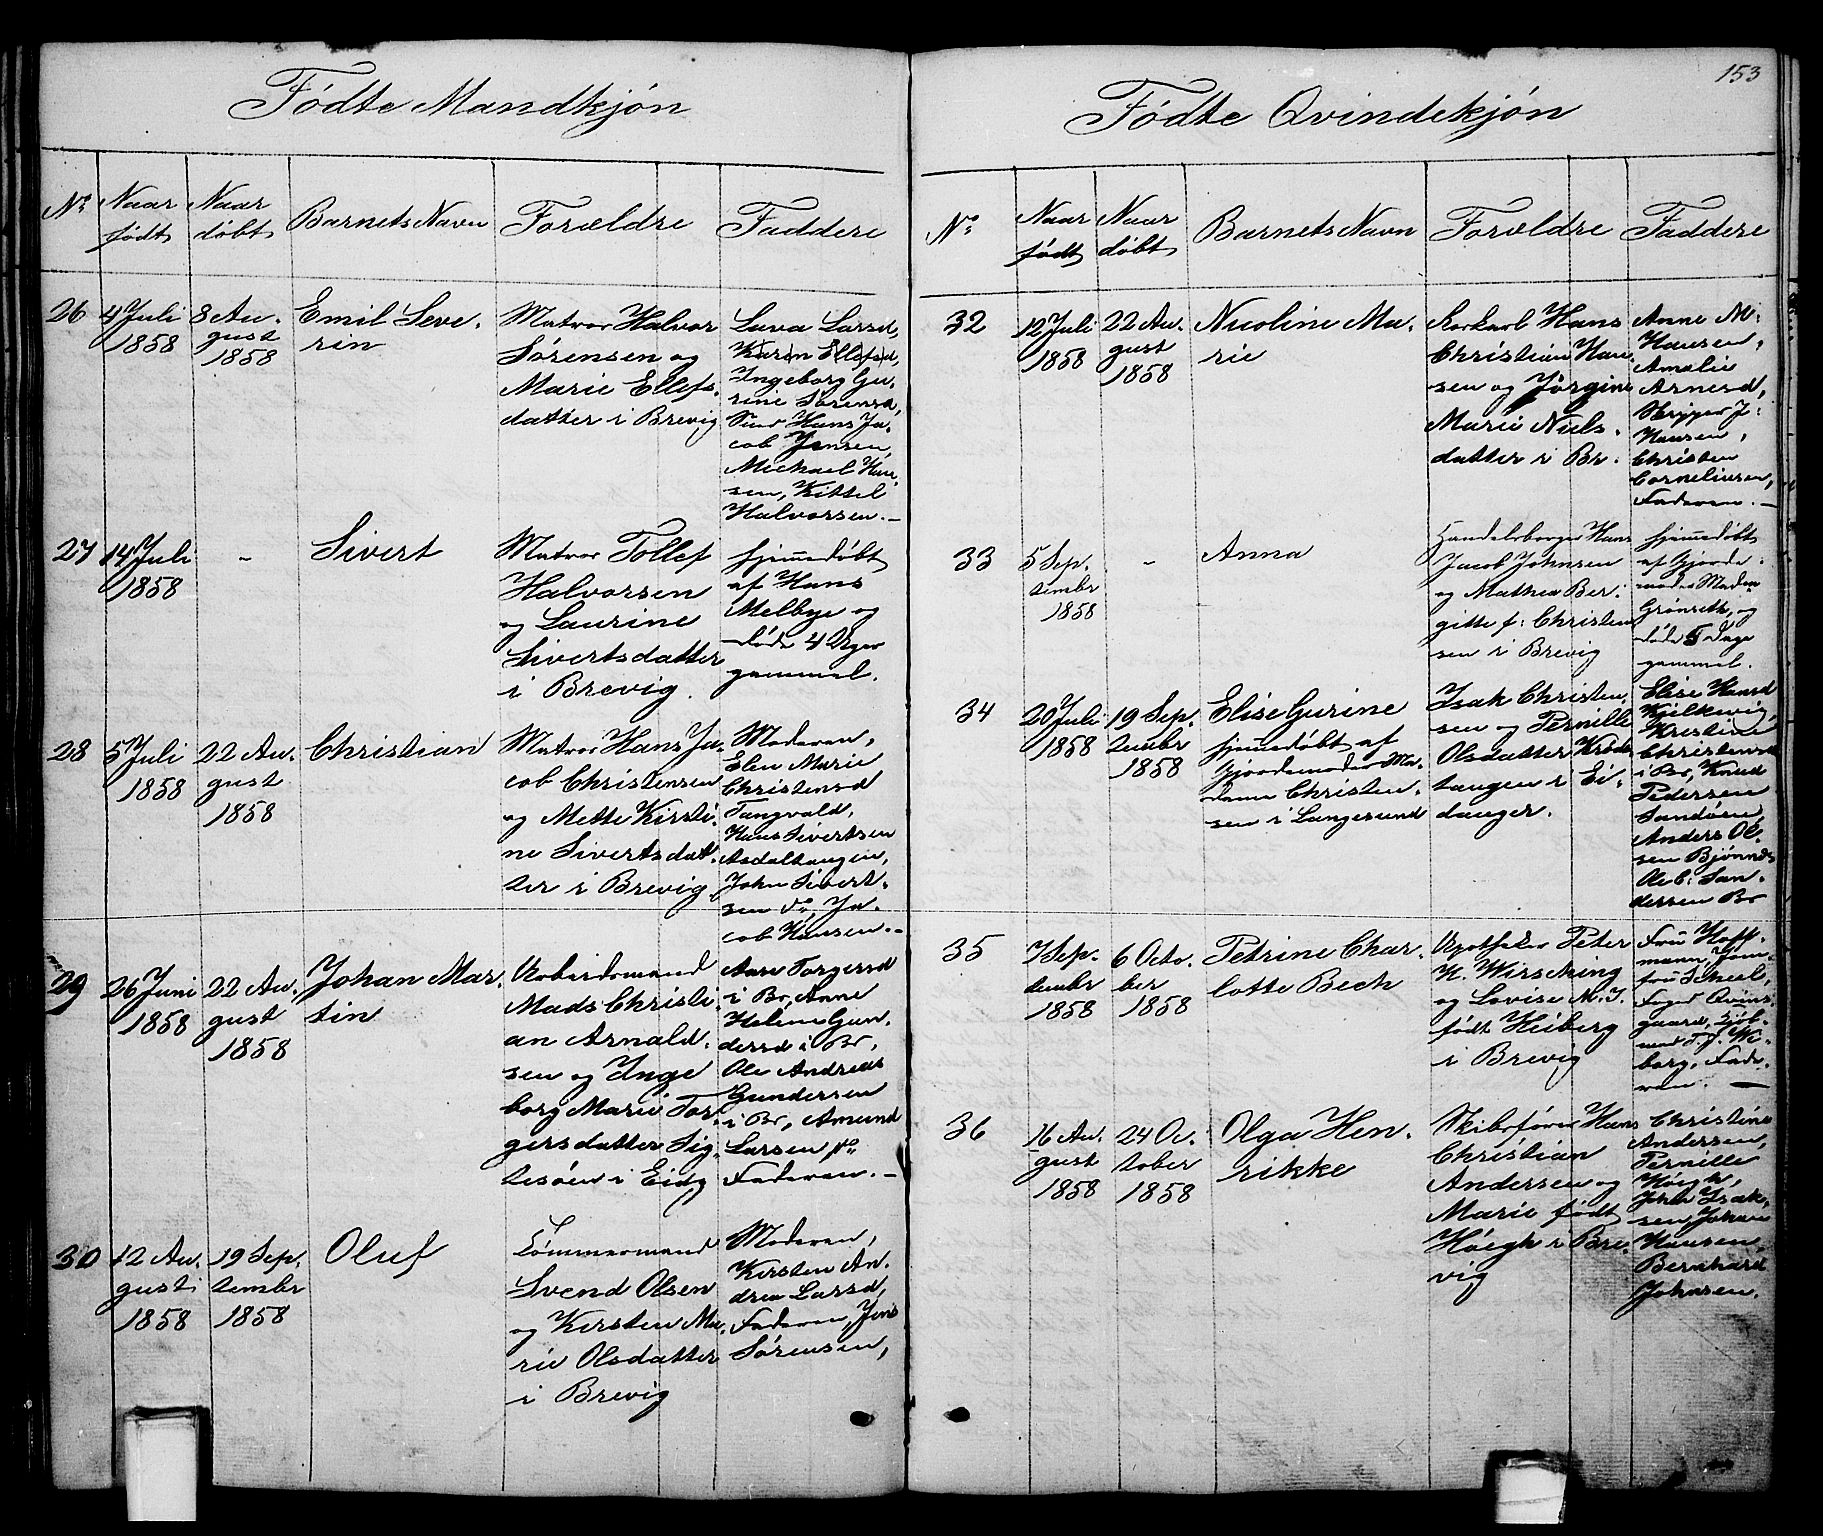 Fødte Mandkjøn
No Naar født Naar døbt Barnets Navn Forældre Faddere
26 4 Juli 1858 8 Au-
gust 1858
Emil Seve-
rin
Matros Halvor
Sørensen og
Marie Ellefs-
datter i Brevig
Lava Larsd,
Karen Ellefsd,
Ingeborg Gu-
rine Sørensd,
Hans Ja-
cob Jensen,
Michael Han-
sen, Kittel
Halvorsen.-
27 14 Juli
1858
-
Sivert
Matros Tollef
Halvorsen
og Laurine
Sivertsdatter
i Brevig.
hjemmedøbt
af Hans
Melbye og
døde 4 Uger
gammel.
28 5 Juli
1858
22 Au-
gust
1858
Christian
Matros Hans Ja-
cob Christensen
og Mette Kirsti-
ne Sivertsdat-
ter i Brevig
Moderen,
Elen Marie
Christensd
Tangvald,
Hans Sivertsen
Asdaltangen,
John Sivert-
sen do, Ja-
cob Hansen.-
29 26 Juni
1858
22 Au-
gust
1858
Johan Mar-
tin
Arbeidsmand
Mads Christi-
an Arnald-
sen og Inge
borg Marie Tor-
gersdatter Sig-
tesøen i Eidg
Aase Torgersd
i Br, Anne
Helene Gun-
dersd i Br,
Ole Andreas
Gundersen
i Br, Amund
Larsen do
Faderen.-
30 12 Au-
gust
1858
19 Sep-
tember
1858
Oluf
Tømmermand
Svend Olsen
og Kirsten Ma-
rie Olsdatter
i Brevig
Moderen,
Kirsten An-
drea Larsd,
Faderen, Jens
Sørensen,
153
Fødte Qvindekjøn
No Naar født Naar døbt Barnets Navn Forældre Faddere
32 12 Juli
1858
22 Au-
gust
1858
Nicoline Ma-
rie
Rorkarl Hans
Christian Han-
sen og Jørgine
Marie Niels-
datter i Br.
Anne M:
Hansen,
Amalie
Arnesd,
Skipper J:
Hansen,
Christen
Corneliusen,
Faderen.-
33 5 Sep-
tember
1858
-
Anna
Handelsborger Hans
Jacob Johnsen
og Mathea Ber-
gitte f: Christen
sen i Brevig
hjemmedøbt
af Gjorde-
moder Madam
Grønseth, og
døde 5 Dage
gammel.
34 20 Juli
1858
19 Sep-
tember
1858
Elise Gurine
hjemmedøbt af
Gjordemoder Ma-
dame Christen-
sen i Langesund
Isak Christen
sen og Pernille
Olsdatter Krøds
tangen i Ei-
danger.
Elise Hansd
Kjilkevig,
Kristine
Christensd
i Br, Knud
Pedersen
Sandøen,
Anders Ol-
sen Bjønnes
Ole C: San-
dersen Br
35 7 Sep-
tember
1858
6 Octo-
ber
1858
Petrine Char-
lotte Bech
Apotheker Peter
H. Wirsching
og Lovise M. J.
født Heiberg
i Brevig
Fru Hoff-
mann, Jom-
fru Scheel,
Foged Qvins-
gaard, Kjøb-
mand T. J. Wi-
borg, Fade-
ren. -
36 16 Au-
gust
1858
24 Oc-
tober
1858
Olga Hen-
rikke
Skibsfører Hans
Christian
Andersen og
Marie født
Høegh i Bre-
vig
Christine
Andersen,
Pernille
Høegh,
John Isak-
sen, Johan
Hansen,
Bernhard
Johnsen.